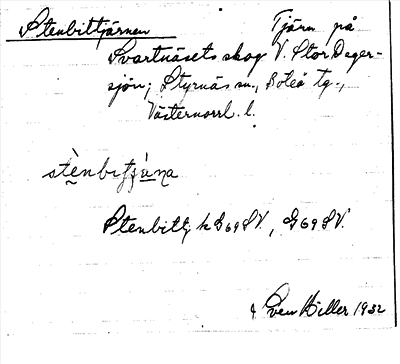 Stenbittjärnen Tjärn på
Svartnäsets skog V. Stor Deger-
sjön; Styrnäs sn., Boteå tg.,
Västernorrl. l.
Stenbittj k G69SV., G69SV.
Sven Hiller 1932